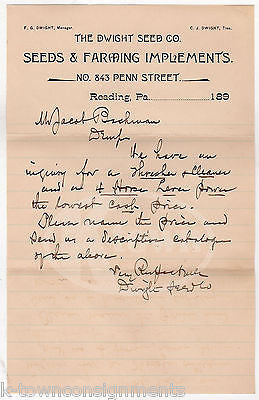 F. G. DWIGHT, Manager. C. J. DWIGHT, Tres.
THE DWIGHT SEED CO.
SEEDS & FARMING IMPLEMENTS.
NO. 843 PENN STREET.
Reading, Pa. 189
Mr Jacob Bachman
We have an
inquiry for a Thresher & Cleaner
and a 4 Horse Lever Power
the lowest Cash price.
Please name the price and
send us a descriptive catalogue
of the above.
Very Respectfully
Dwight Seed Co
k-townconsignments